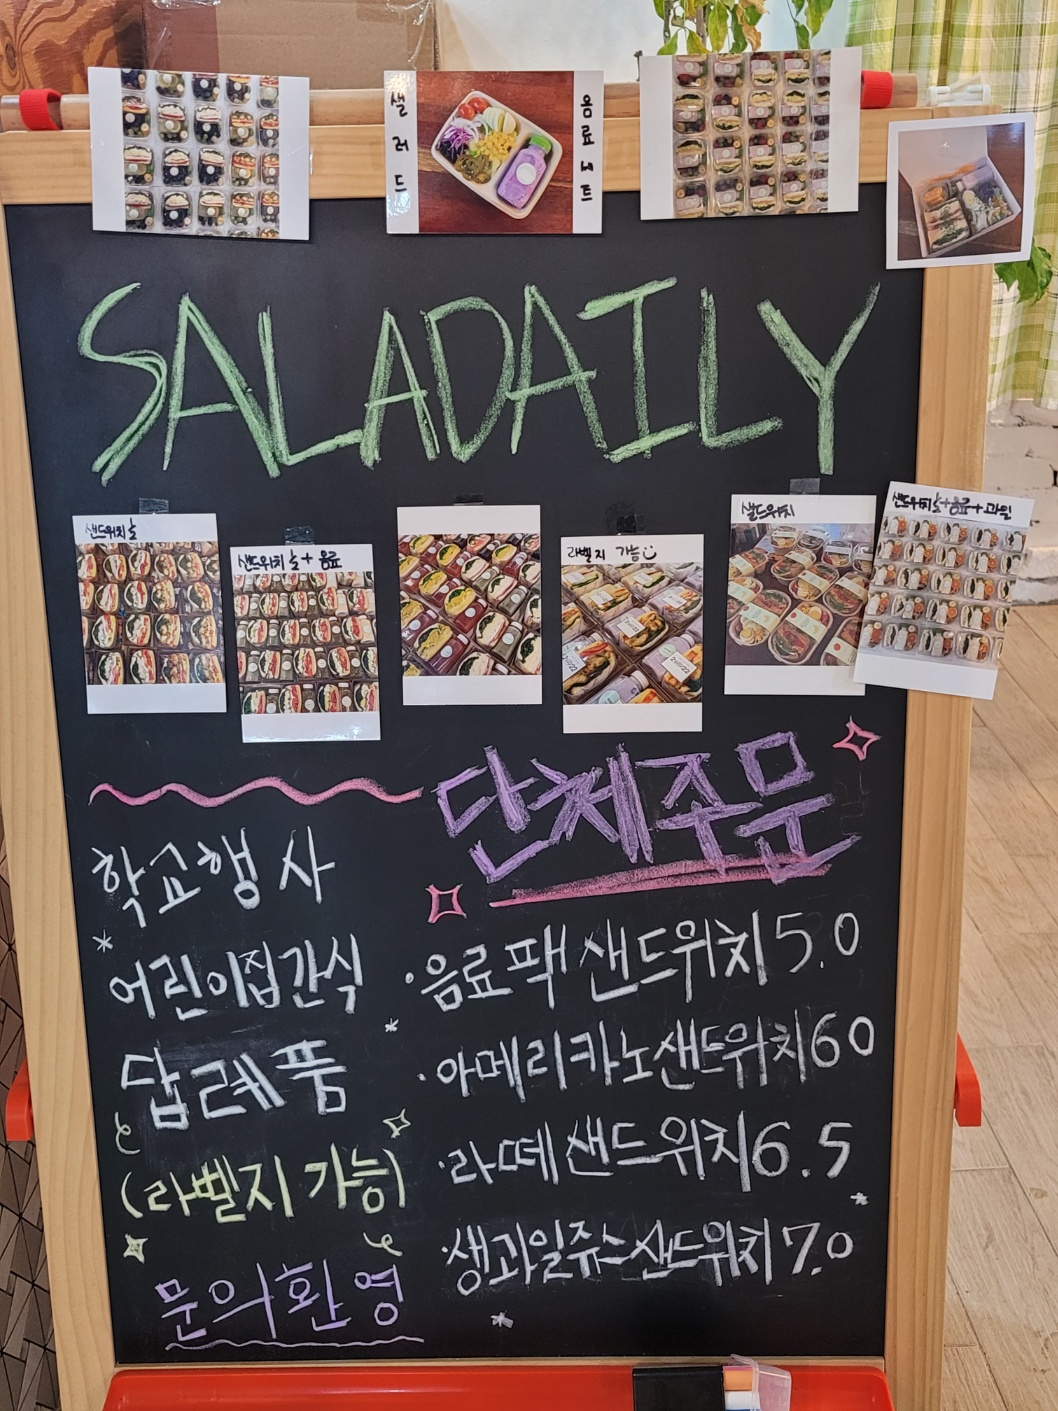 샐러드
음료세트
SALADAILY
샌드위치 ½
샌드위치 ½ + 음료
라벨지 가능
샌드위치
샌드위치 ½ + 음료 + 과일
단체주문
학교행사
어린이집간식
답례품
(라벨지 가능)
문의환영
·음료팩 샌드위치 5.0
·아메리카노샌드위치 60
·라떼 샌드위치 6.5
·생과일쥬스샌드위치 7.0